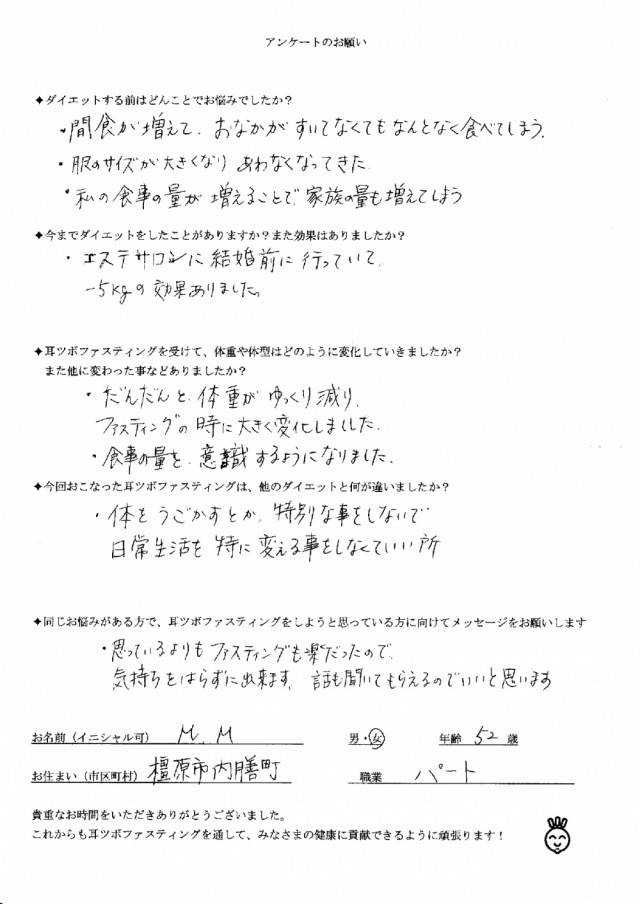 アンケートのお願い
✦ダイエットする前はどんことでお悩みでしたか？
・間食が増えて、おなかがすいてなくてもなんとなく食べてしまう。
・服のサイズが大きくなりあわなくなってきた
・私の食事の量が増えることで家族の量も増えてしまう
✦今までダイエットをしたことがありますか？また効果はありましたか？
・エステサロンに結婚前に行っていて、
−5kgの効果ありました。
✦耳ツボファスティングを受けて、体重や体型はどのように変化していきましたか？
また他に変わった事などありましたか？
・だんだんと体重がゆっくり減り、
ファスティングの時に大きく変化しました。
・食事の量を、意識するようになりました。
✦今回おこなった耳ツボファスティングは、他のダイエットと何が違いましたか？
・体をうごかすとか、特別な事をしないで
日常生活を特に変える事をしなくていい所
✦同じお悩みがある方で、耳ツボファスティングをしようと思っている方に向けてメッセージをお願いします
・思っているよりもファスティングも楽だったので、
気持ちをはらずに出来ます。話も聞いてもらえるのでいいと思います
お名前（イニシャル可） M.M 男・女 年齢 52 歳
お住まい（市区町村） 橿原市内膳町 職業 パート
貴重なお時間をいただきありがとうございました。
これからも耳ツボファスティングを通して、みなさまの健康に貢献できるように頑張ります！